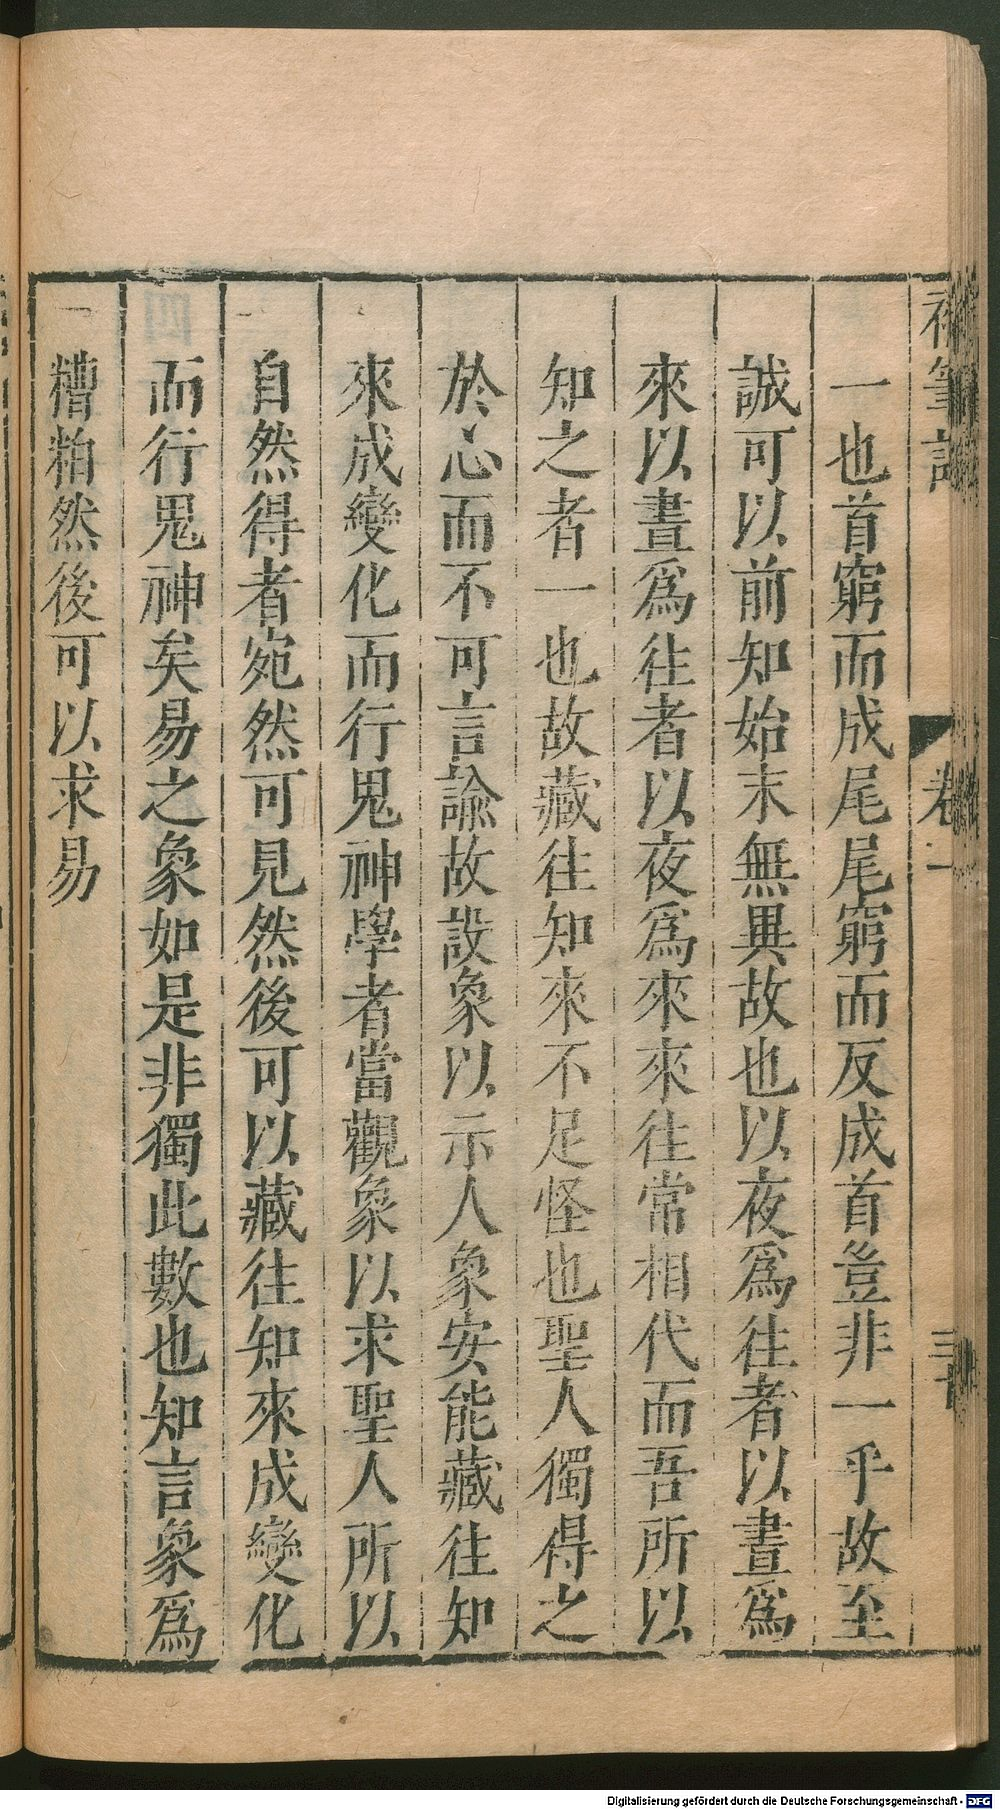 補筆談
卷一
三十
一也首窮而成尾尾窮而反成首豈非一乎故至
誠可以前知始末無異故也以夜爲往者以晝爲
來以晝爲往者以夜爲來來往常相代而吾所以
知之者一也故藏往知來不足怪也聖人獨得之
於心而不可言諭故設象以示人象安能藏往知
來成變化而行鬼神學者當觀象以求聖人所以
自然得者宛然可見然後可以藏往知來成變化
而行鬼神矣易之象如是非獨此數也知言象爲
糟粕然後可以求易
Digitalisierung gefördert durch die Deutsche Forschungsgemeinschaft - DFG